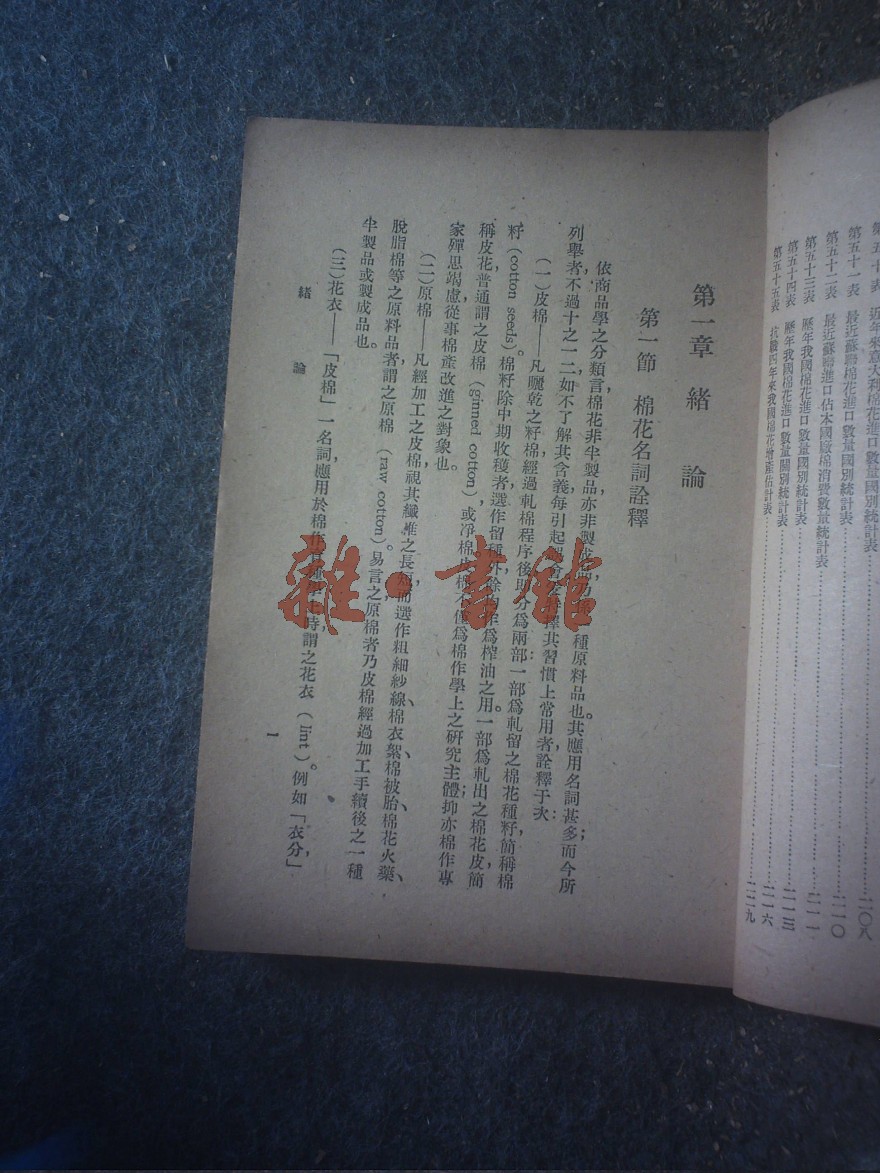 近年來意大利棉花進口數量國別統計表……二〇八
第五十一表 最近蘇聯棉花進口數量國別統計表……二一〇
第五十二表 最近蘇聯進口佔本國廠棉消費數量統計表……二一一
第五十三表 歷年我國棉花進口數量國別統計表……二一三
第五十四表 歷年我國棉花進口數量關別統計表……二一六
第五十五表 抗戰四年來我國棉花增產估計表……二二九
第一章 緒論
第一節 棉花名詞詮釋
依商品學之分類言,棉花非半製品,亦非製成品,乃係一種原料品也。其應用名詞甚多;而今所
列舉者,不過十之一二,如不了解其含義,每引起誤會,茲擇其習慣上常用者,詮釋于次:
(一)皮棉——凡曬乾之籽棉,經過軋棉程序後,即分為兩部:一部為軋留之棉花種籽,簡稱棉
籽(cotton seeds)。棉籽除中期收穫者,選作留種外,餘均作為榨油之用。一部為軋出之棉花皮,簡
稱皮花,普通謂之皮棉(ginned cotton),或淨棉。皮棉不僅為棉作學上之研究主體;抑亦棉作專
家殫思竭慮,從事棉產改進之對象也。
(二)原棉——凡經加工之皮棉,視其纖維之長短,而選作粗細紗線、棉衣絮、棉被胎、棉花火藥、
脫脂棉等之原料品者,謂之原棉(raw cotton)。易言之,原棉者,乃皮棉經過加工手續後之一種
半製品或製成品也。
(三)花衣——「皮棉」一名詞,應用於棉作育種學上時,謂之花衣(lint)。例如「衣分」,
緒論
一
雜·書館